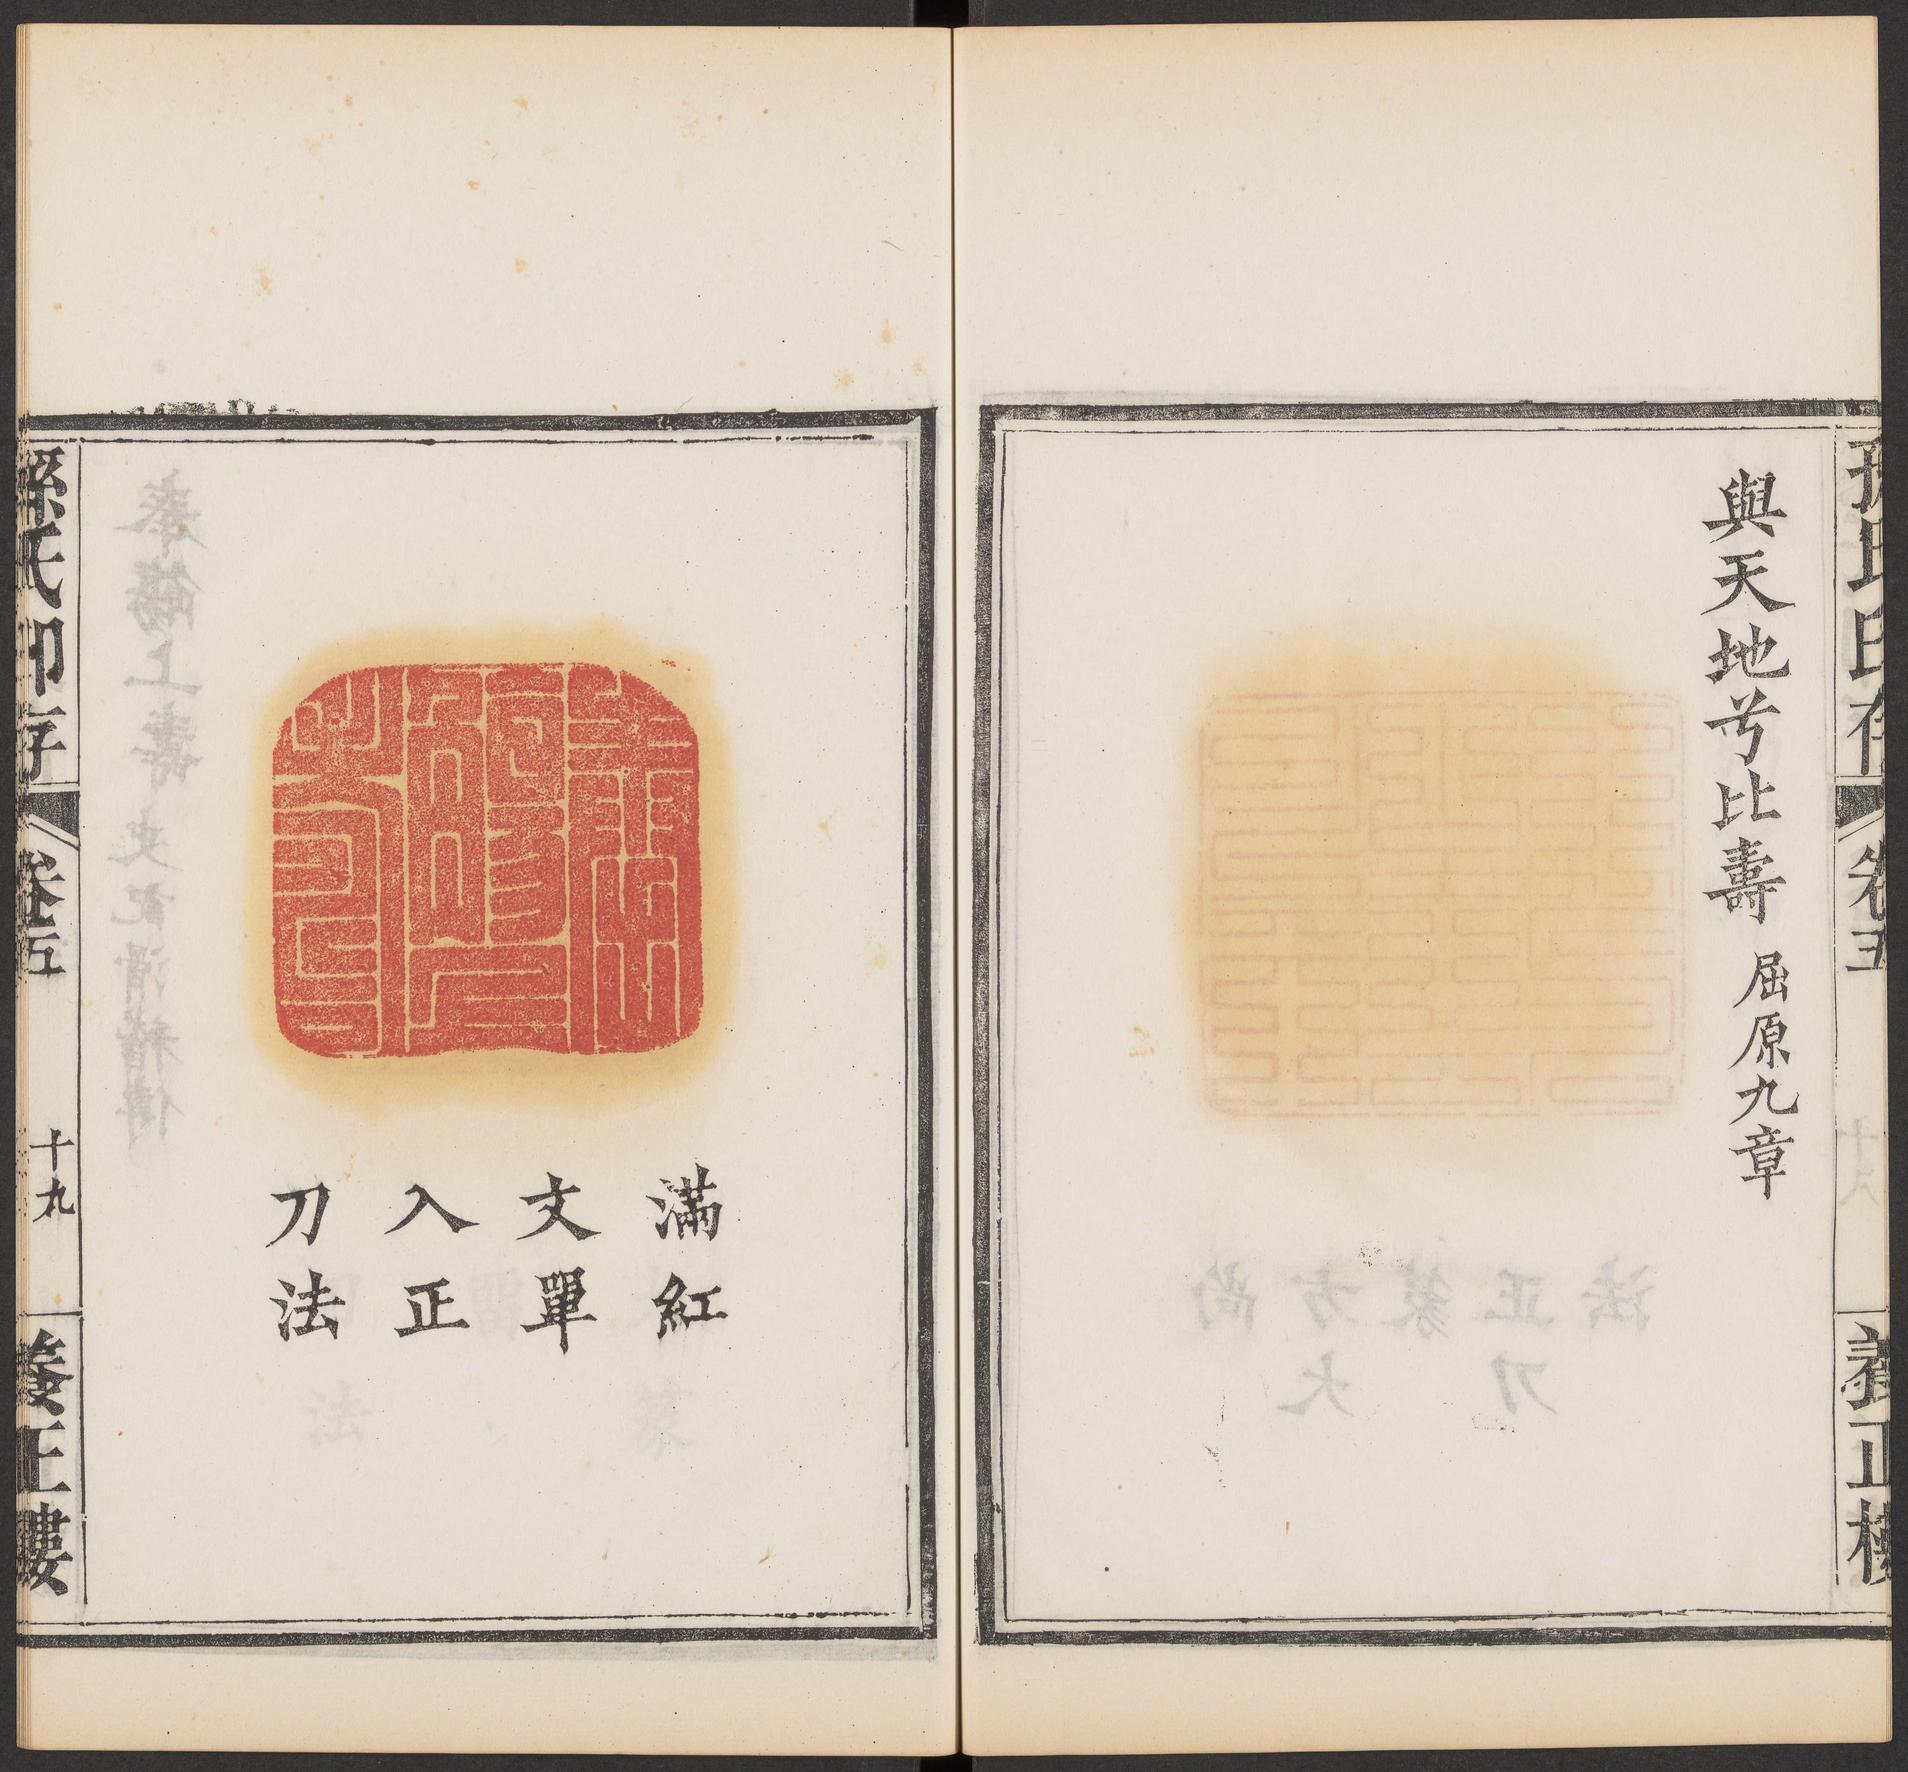 孫氏印存
卷五
養正樓
與天地兮比壽 屈原九章
奉觴上壽
滿紅
文單
入正
刀法
孫氏印存
卷五
十九
養正樓